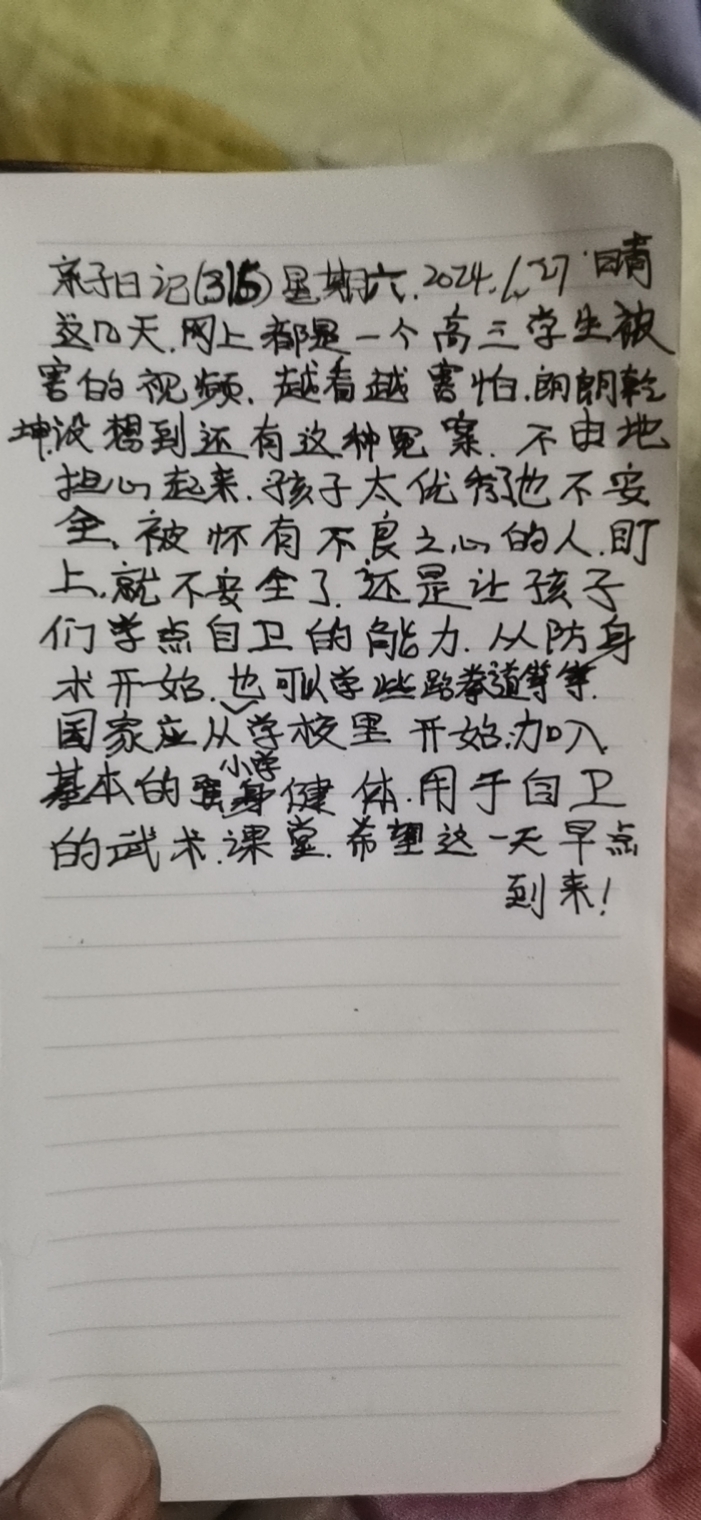 亲子日记(315)星期六.2024.1.27晴
这几天.网上都是一个高三学生被
害的视频.越看越害怕.朗朗乾
坤.没想到还有这种冤案.不由地
担心起来.孩子太优秀了也不安
全.被怀有不良之心的人.盯
上.就不安全了.还是让孩子
们学点自卫的能力.从防身
术开始.也可以学些跆拳道等等.
国家应从小学学校里开始.加入
基本的强身健体.用于自卫
的武术.课堂.希望这一天早点
到来!